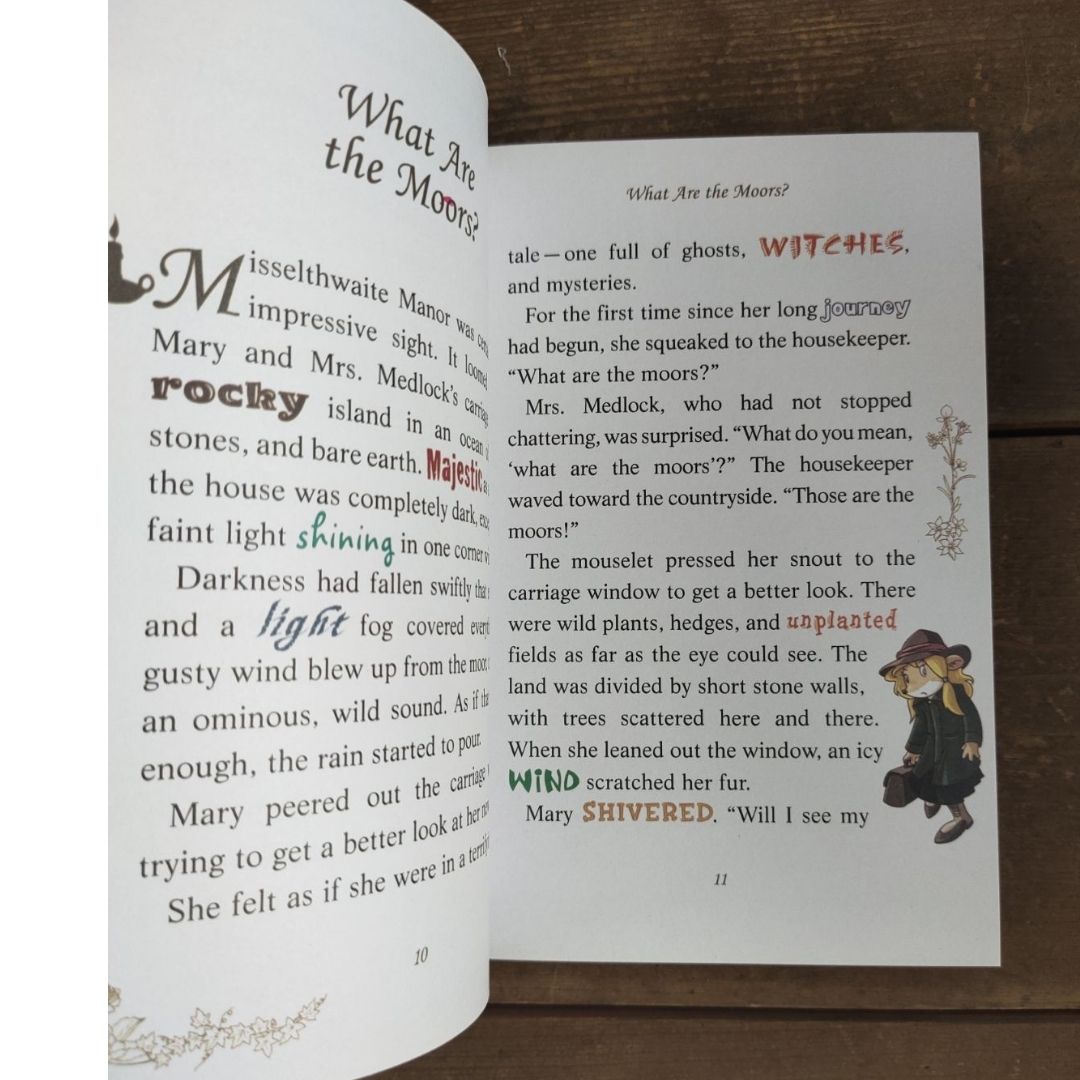 What Are
the Moors?
Misselthwaite Manor was
impressive sight. It
Mary and Mrs. Medlock's
rocky island in an ocean
stones, and bare earth. Majestic
the house was completely dark,
faint light shining in one corner
Darkness had fallen swiftly
and a light fog covered
gusty wind blew up from the
an ominous, wild sound. As if
enough, the rain started to pour.
Mary peered out the carriage
trying to get a better look at her
She felt as if she were in a
10
What Are the Moors?
tale—one full of ghosts, WITCHES,
and mysteries.
For the first time since her long journey
had begun, she squeaked to the housekeeper.
“What are the moors?”
Mrs. Medlock, who had not stopped
chattering, was surprised. “What do you mean,
‘what are the moors’?” The housekeeper
waved toward the countryside. “Those are the
moors!”
The mouselet pressed her snout to the
carriage window to get a better look. There
were wild plants, hedges, and unplanted
fields as far as the eye could see. The
land was divided by short stone walls,
with trees scattered here and there.
When she leaned out the window, an icy
WIND scratched her fur.
Mary SHIVERED. “Will I see my
11